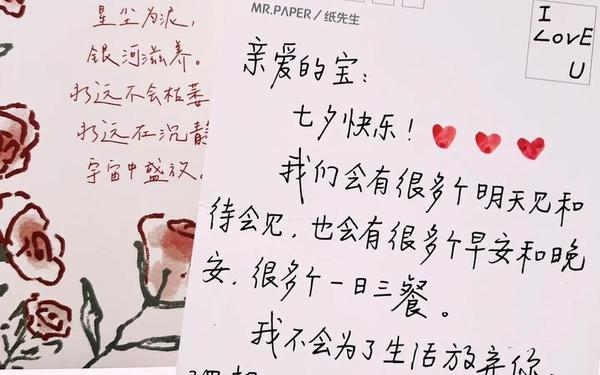 星尘为泥，
银河滋养。
永远不会枯萎
永远在沉静
宇宙中盛放。
MR.PAPER / 纸先生
I
LovE
U
亲爱的宝：
七夕快乐！
我们会有很多个明天见和
待会见，也会有很多个早安和晚
安，很多个一日三餐。
我不会为了生活放弃你